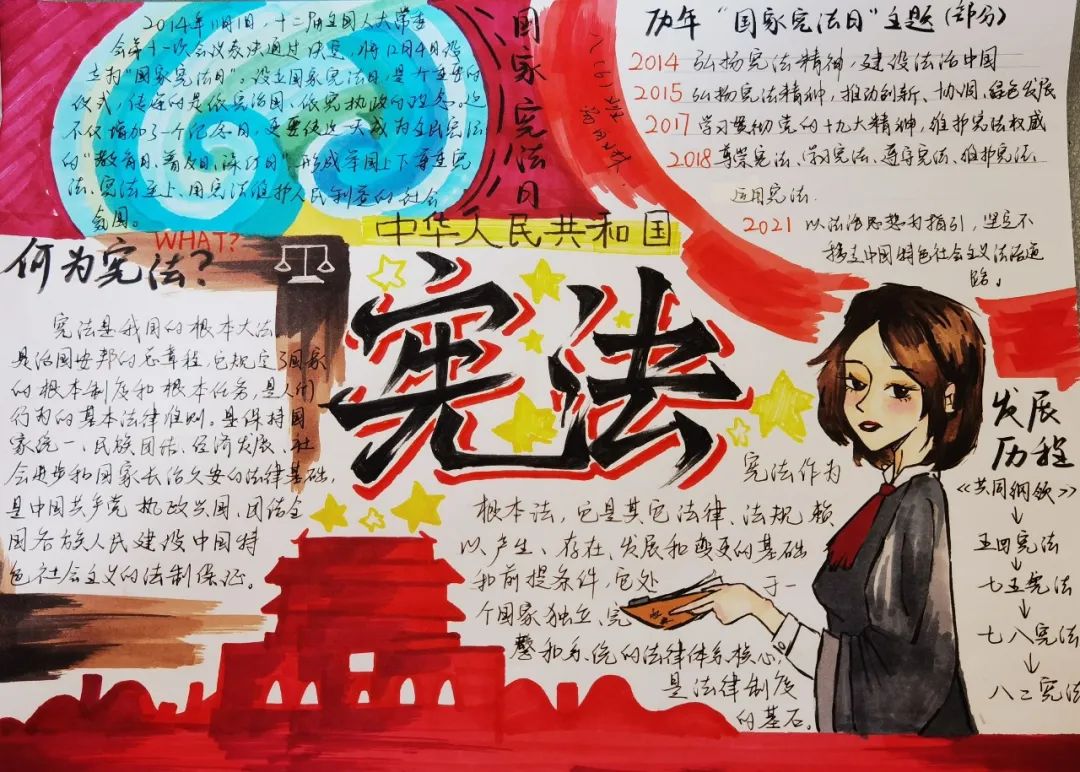 2014年11月1日，十二届全国人大常委
会第十一次会议表决通过决定，将12月4日设
立为“国家宪法日”。设立国家宪法日，是一个重要的
仪式，传递的是依宪治国、依宪执政的理念。这
不仅增加了一个纪念日，更要使这一天成为全民宪法
的“教育日、普及日、深行日”，形成举国上下尊重宪
法、宪法至上、用宪法维护人民利益的社会
氛围。
国家宪法日
历年“国家宪法日”主题(部分)
2014 弘扬宪法精神，建设法治中国
2015 弘扬宪法精神，推动创新、协调、绿色发展
2017 学习贯彻党的十九大精神，维护宪法权威
2018 尊崇宪法、学习宪法、遵守宪法、维护宪法、
运用宪法.
2021 以法治思想为指引，坚定不
移走中国特色社会主义法治道
路。
中华人民共和国
宪法
WHAT?
何为宪法？
宪法是我国的根本大法，
是治国安邦的总章程，它规定了国家
的根本制度和根本任务，是人们
行为的基本法律准则。是保持国
家统一、民族团结、经济发展、社
会进步和国家长治久安的法律基础，
是中国共产党执政兴国、团结全
国各族人民建设中国特
色社会主义的法制保证。
宪法作为
根本法，它是其它法律、法规赖
以产生、存在、发展和变更的基础
和前提条件，它处于一
个国家独立、完
整和系统的法律体系核心，
是法律制度
的基石。
发展
历程
《共同纲领》
↓
五四宪法
↓
七五宪法
↓
七八宪法
↓
八二宪法